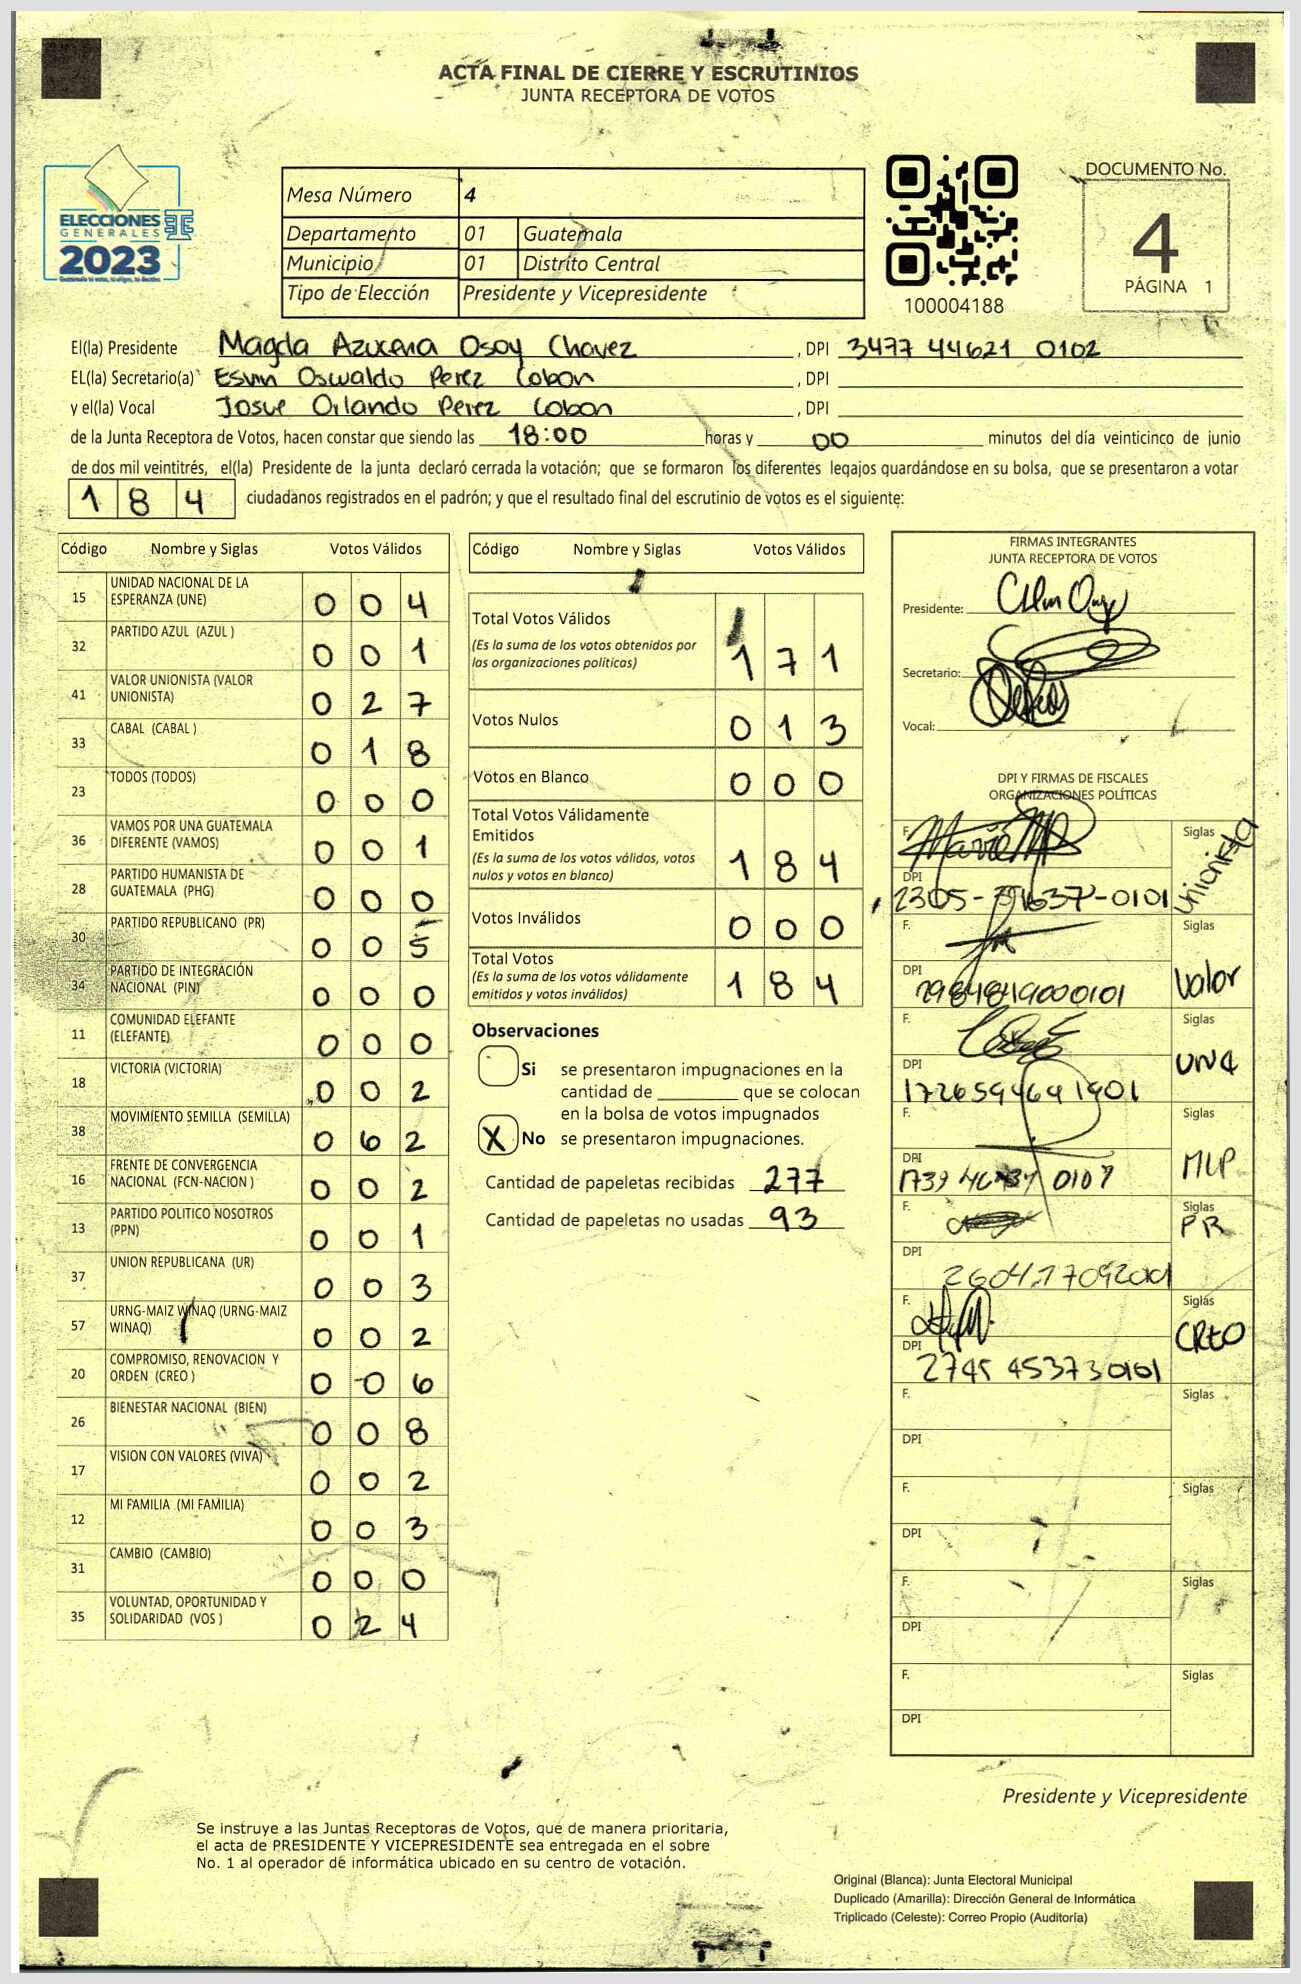 ACTA FINAL DE CIERRE Y ESCRUTINIOS
JUNTA RECEPTORA DE VOTOS
ELECCIONES
GENERALES
2023
Mesa Número 4
Departamento 01 Guatemala
Municipio 01 Distrito Central
Tipo de Elección Presidente y Vicepresidente
100004188
DOCUMENTO No.
4
PÁGINA 1
El(la) Presidente Magda Azucena Osoy Chavez , DPI 3477 44621 0102
EL(la) Secretario(a) Esvin Oswaldo Perez Cobon , DPI
y el(la) Vocal Josue Orlando Perez Cobon , DPI
de la Junta Receptora de Votos, hacen constar que siendo las 18:00 horas y 00 minutos del día veinticinco de junio
de dos mil veintitrés, el(la) Presidente de la junta declaró cerrada la votación; que se formaron los diferentes legajos guardándose en su bolsa, que se presentaron a votar
184 ciudadanos registrados en el padrón; y que el resultado final del escrutinio de votos es el siguiente:
Código Nombre y Siglas Votos Válidos
15 UNIDAD NACIONAL DE LA ESPERANZA (UNE) 0 0 4
32 PARTIDO AZUL (AZUL ) 0 0 1
41 VALOR UNIONISTA (VALOR UNIONISTA) 0 2 7
33 CABAL (CABAL ) 0 1 8
23 TODOS (TODOS) 0 0 0
36 VAMOS POR UNA GUATEMALA DIFERENTE (VAMOS) 0 0 1
28 PARTIDO HUMANISTA DE GUATEMALA (PHG) 0 0 0
30 PARTIDO REPUBLICANO (PR) 0 0 5
34 PARTIDO DE INTEGRACIÓN NACIONAL (PIN) 0 0 0
11 COMUNIDAD ELEFANTE (ELEFANTE) 0 0 0
18 VICTORIA (VICTORIA) 0 0 2
38 MOVIMIENTO SEMILLA (SEMILLA) 0 6 2
16 FRENTE DE CONVERGENCIA NACIONAL (FCN-NACION ) 0 0 2
13 PARTIDO POLITICO NOSOTROS (PPN) 0 0 1
37 UNION REPUBLICANA (UR) 0 0 3
57 URNG-MAIZ WINAQ (URNG-MAIZ WINAQ) 0 0 2
20 COMPROMISO, RENOVACION Y ORDEN (CREO ) 0 0 6
26 BIENESTAR NACIONAL (BIEN) 0 0 8
17 VISION CON VALORES (VIVA) 0 0 2
12 MI FAMILIA (MI FAMILIA) 0 0 3
31 CAMBIO (CAMBIO) 0 0 0
35 VOLUNTAD, OPORTUNIDAD Y SOLIDARIDAD (VOS ) 0 2 4
Código Nombre y Siglas Votos Válidos
Total Votos Válidos 1 7 1
(Es la suma de los votos obtenidos por
las organizaciones politicas)
Votos Nulos 0 1 3
Votos en Blanco 0 0 0
Total Votos Válidamente
Emitidos 1 8 4
(Es la suma de los votos válidos, votos
nulos y votos en blanco)
Votos Inválidos 0 0 0
Total Votos 1 8 4
(Es la suma de los votos válidamente
emitidos y votos inválidos)
Observaciones
Si se presentaron impugnaciones en la
cantidad de ________ que se colocan
en la bolsa de votos impugnados
X No se presentaron impugnaciones.
Cantidad de papeletas recibidas 277
Cantidad de papeletas no usadas 93
FIRMAS INTEGRANTES
JUNTA RECEPTORA DE VOTOS
Presidente:
Secretario:
Vocal:
DPI Y FIRMAS DE FISCALES
ORGANIZACIONES POLÍTICAS
F. Siglas Unionista
DPI
F. Siglas Valor
DPI 2984849000101
F. Siglas UNE
DPI 1726594691901
F. Siglas MLP
DPI
F. Siglas PR
DPI
F. Siglas CREO
DPI 2745 453730101
F. Siglas
DPI
F. Siglas
DPI
F. Siglas
DPI
F. Siglas
DPI
Presidente y Vicepresidente
Se instruye a las Juntas Receptoras de Votos, que de manera prioritaria,
el acta de PRESIDENTE Y VICEPRESIDENTE sea entregada en el sobre
No. 1 al operador de informática ubicado en su centro de votación.
Original (Blanca): Junta Electoral Municipal
Duplicado (Amarilla): Dirección General de Informática
Triplicado (Celeste): Correo Propio (Auditoría)